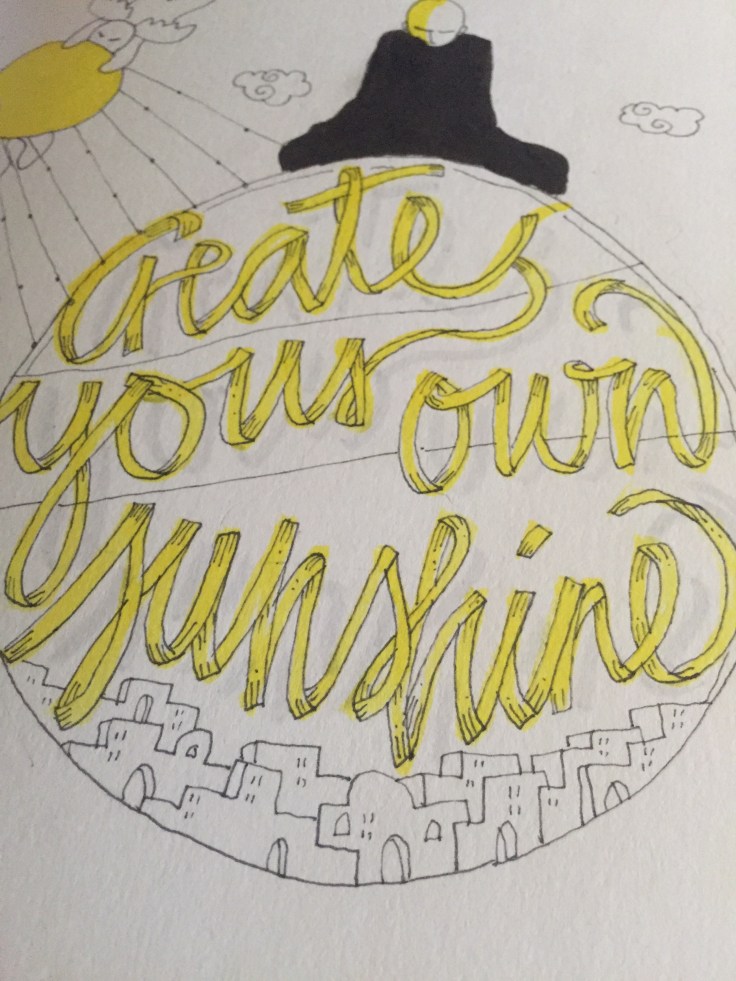 Create
your own
sunshine